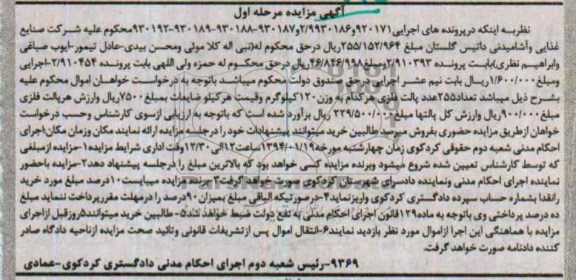 آگهی مزایده مرحله اول
نظربه اینکه درپرونده های اجرایی۹۲۰۱۷۱و۲/۹۹۳۰۱۸۶و۲/۹۳۰۱۸۷-۹۳۰۱۸۸-۹۳۰۱۸۹-۹۳۰۱۹۳-۹۳۰۱۹۲محکوم علیه شرکت صنایع
غذایی وآشامیدنی دانیس گلستان مبلغ ۲۵۵/۱۵۲/۹۶۴ریال درحق محکوم له(نبی اله کلا موئی ومحسن بیدی-عادل تیمور-ایوب صباغی
وابراهیم نظری)بابت پرونده ۲/۹۱۰۳۹۳ومبلغ۲۶/۸۴۶/۹۹۸ریال درحق محکوم له حمزه ولی اللهی بابت پرونده ۲/۹۱۰۴۵۴-اجرایی
ومبلغ۱/۶۰۰/۰۰۰ریال بابت نیم عشر اجرایی درحق صندوق دولت محکوم میباشد باتوجه به درخواست خواهان اموال محکوم علیه
بشرح ذیل میباشد تعداد۲۵۵عدد پالت فلزی هرکدام به وزن۱۲۰کیلوگرم وقیمت هرکیلو ضایعات بمبلغ۷۵۰۰ریال وارزش هرپالت فلزی
۹۰۰/۰۰۰ریال وارزش کل پالتها مبلغ۲۲۹/۵۰۰/۰۰۰ریال برآورد شده است که باتوجه به ارزیابی ازسوی کارشناس وحسب درخواست
خواهان ازطریق مزایده حضوری بفروش میرسد طالبین خرید میتوانند پیشنهادات خود را درجلسه مزایده ارائه نمایند مکان وزمان مکان:اجرای
احکام مدنی شعبه دوم حقوقی کردکوی زمان چهارشنبه مورخه۱۳۹۴/۰۱/۱۹ساعت۱۲الی۱۲/۳۰وقت اداری شرایط مزایده۱-مزایده ازمبلغی
که توسط کارشناس تعیین شده شروع میشود وبرنده مزایده کسی خواهد بود که بالاترین مبلغ را درجلسه پیشنهاد دهد۲-مزایده باحضور
نماینده اجرای احکام مدنی ونماینده دادسرای شهرستان کردکوی صورت خواهدگرفت۳-برنده مزایده میبایست۱۰درصد مبلغ مورد خرید
رانقدا بشماره حساب سپرده دادگستری کردکوی واریزنماید۴-درصورتیکه الباقی مبلغ بمیزان۹۰درصد را درمهلت مقررپرداخت ننماید مبلغ
ده درصد پرداختی وی باتوجه به ماده۱۲۹قانون اجرای احکام مدنی به نفع دولت ضبط خواهد شد۵-طالبین خرید میتوانند۵روزقبل ازاجرای
مزایده با هماهنگی این اجرا ازاموال مورد نظر بازدید نمایند۶-انتقال اموال پس ازتشریفات قانونی وتائید صحت مزایده ازناحیه دادگاه صادر
کننده دادنامه صورت خواهد گرفت.
۹۳۶۹-رئیس شعبه دوم اجرای احکام مدنی دادگستری کردکوی-عمادی